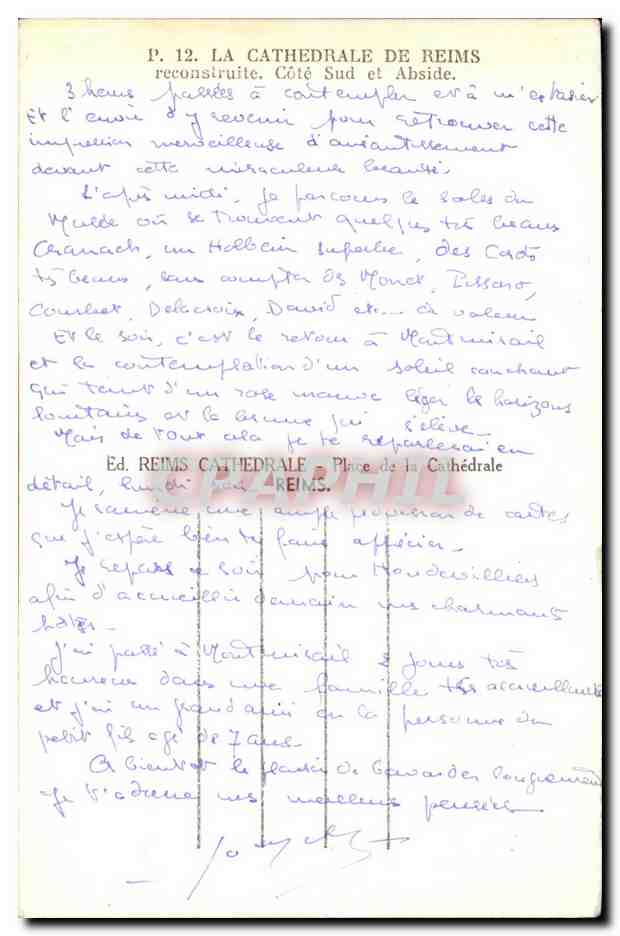 P. 12. LA CATHEDRALE DE REIMS
reconstruite. Côté Sud et Abside.
3 heures passées à contempler et à m'extasier
Et l'envie d'y revenir pour retrouver cette
impression merveilleuse d'anéantissement
devant cette miraculeuse beauté.
L'après midi, je parcours les salles du
Musée où se trouvent quelques très beaux
Cranach, un Holbein superbe, des Corots
très beaux, sans compter des Monet, Pissaro,
Courbet, Delacroix, David etc... de valeur
Et le soir, c'est le retour à Montmirail
et la contemplation d'un soleil couchant
qui teint d'un rose mauve léger les horizons
lointains et la brume qui s'élève.
Mais de tout cela je te reparlerai en
Ed. REIMS CATHEDRALE - Place de la Cathédrale
détail, lundi
REIMS.
CPAPHIL
Je ramène une ample provision de cartes
que j'espère bien te faire apprécier.
Je repars ce soir pour Hondevilliers
afin d'accueillir demain mes charmants
hôtes.
J'ai passé à Montmirail 2 jours très
heureux dans une famille très accueillante
et j'ai un grand ami en la personne du
petit fils agé de 7 ans.
A bientôt le plaisir de bavarder longuement
Je t'adresse mes meilleures pensées